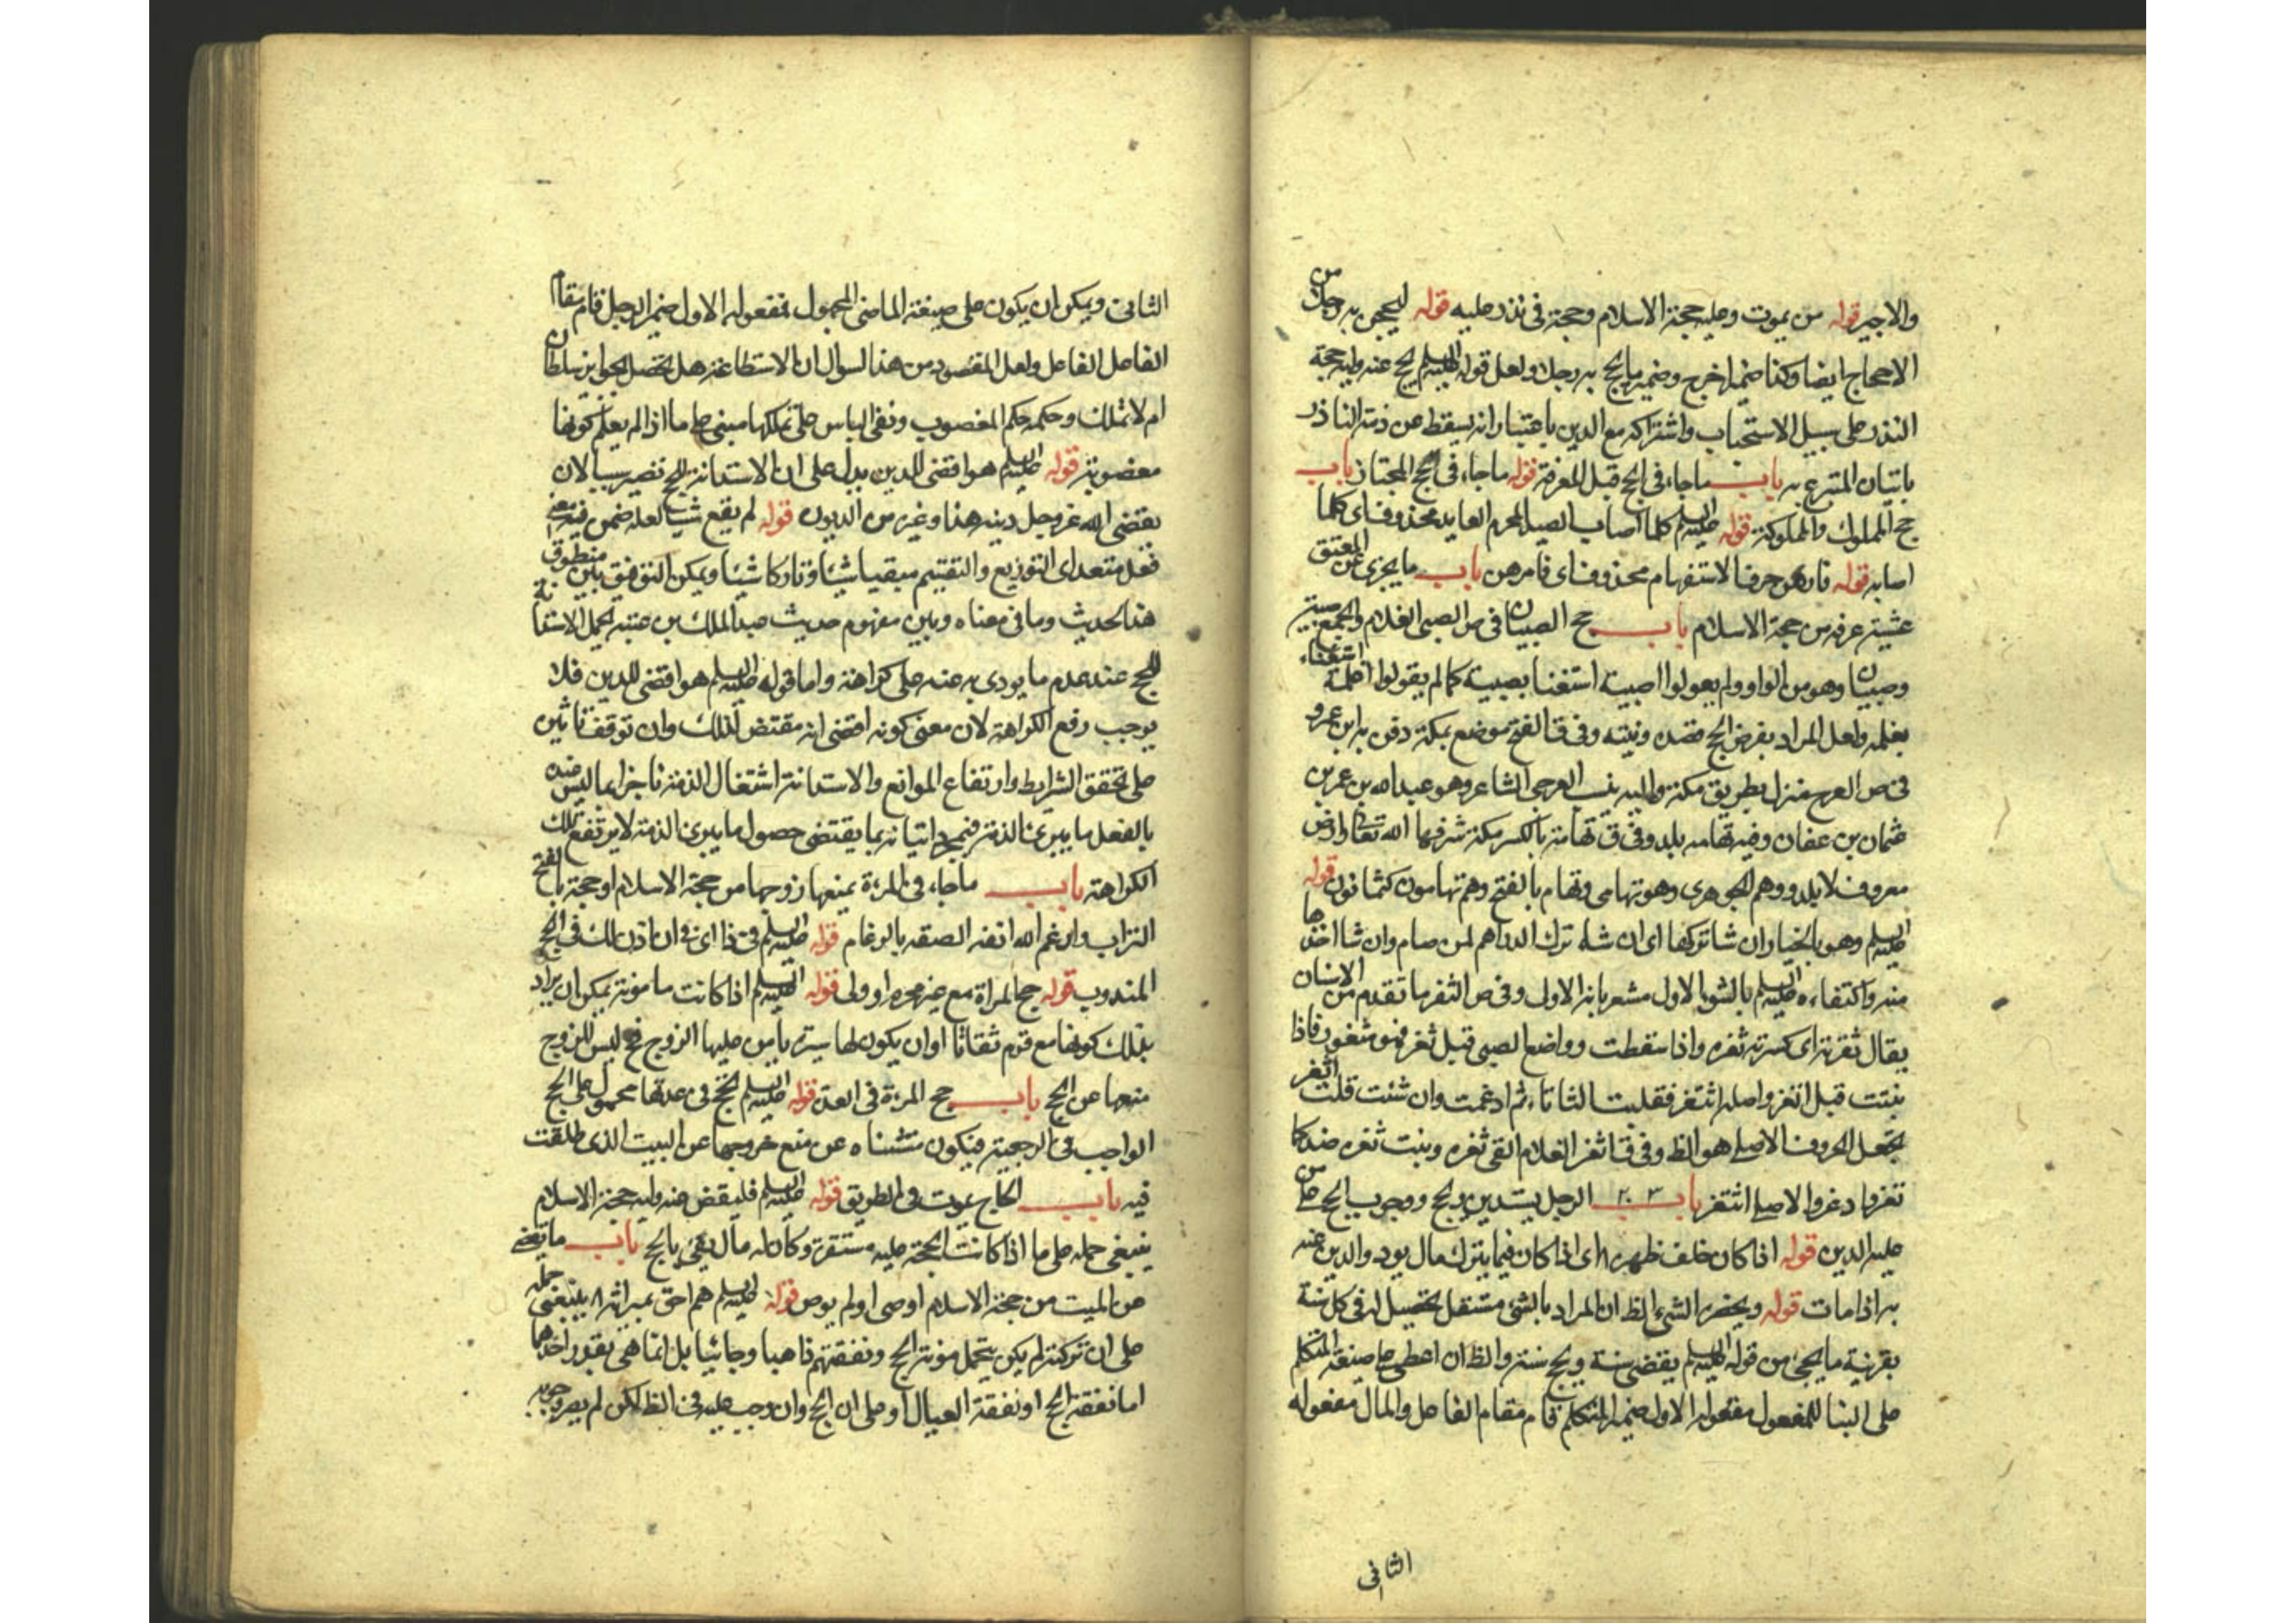 والاجير قوله من يموت وعليه حجة الاسلام وحجة في نذر عليه قوله ليحجن به رجل من
الاحجاج ايضا وكذا ضمير اخرج وضمير ما يحج به رجلا ولعل قوله عليه السلم يحج عنه وليه حجة
النذر على سبيل الاستحباب واشتراكه مع الدين باعتبار انه يسقط عن ذمة الناذر
باتيان المتبرع به باب ما جاء في الحج قبل المعرفة قوله ما جاء في الحج المجتاز باب
حج المملوك والمملوكة قوله عليه السلم كلما اصاب الصيد المحرم العايد محذوف اى كلما
اصابه قوله فامرهن حرف الاستفهام محذوف اى فامرهن باب ما يجزى عن المعتق
عشية عرفه من حجة الاسلام باب حج الصبيان في ص الصبي الغلام والجمع صبية
وصبيان وهو من الواو ولم يقولوا اصبية استغنا بصبية كما لم يقولوا اغلمة استغناء
بغلمة ولعل المراد بفرض الحج قصده ونيته وفي قا الفخ موضع بمكة دفن به ابن عمرو
في ص العرج منزل بطريق مكة واليه ينسب العرجي الشاعر وهو عبد الله بن عمر بن
عثمان بن عفان وفيه تهامه بلد وفي ق تهامة بالكسر مكة شرفها الله تعالى وارض
معروف لا بلد ووهم الجوهرى وهو تهامى وتهام بالفتح وهم تهامون كثمانون قوله
عليه السلم وهو بالخيار ان شا تركها اى ان شاء ترك الدراهم لمن صام وان شا اخذها
منه واكتفاءه عليه السلم بالشق الاول مشعر بانه الاول وفي ص الثغر ما تقدم من الاسنان
يقال ثغرته اى كسرت ثغره واذا سقطت رواضع الصبي قيل ثغر فهو مثغور فاذا
نبتت قيل اتغر واصله اثتغر فقلبت الثا تاء ثم ادغمت وان شئت قلت اثغر
بجعل الحروف الاصلى هو الظ وفي قا اثغر الغلام القى ثغره ونبت ثغره ضد كا
تغر وادغر والاصل اثتغر باب الرجل يستدين ويحج ووجوب الحج على من
عليه الدين قوله اذا كان خلف ظهره اى اذا كان فيما يترك مال يودى الدين عنه
به اذا مات قوله ويحضر الشىء الظ ان المراد بالشئ مستقل يحصيل له في كل سنة
بقرينة ما يجئ من قوله عليه السلم يقضى سنة ويحج سنة والظ ان اعطى على صيغة المتكلم
على البنا للمفعول مفعوله الاول ضمير المتكلم قام مقام الفاعل والمال مفعوله
الثاني
الثانى ويمكن ان يكون على صيغة الماضى المجهول فمفعوله الاول ضمير الرجل قام مقام
الفاعل الفاعل ولعل المقصود من هذا السوال ان الاستطاعة هل تحصل بجوايز سلطان
ام لا تملك وحكمه حكم المغصوب ونفى الباس على تملكها مبنى على ما اذا لم يعلم كونها
مغصوبة قوله عليه السلم هو اقضى للدين يدل على ان الاستدانة للحج تصير سببا لان
يقضى الله عز وجل دينه هذا وغيره من الديون قوله لم يقع شيئا لعله ضمن فيه معنى
فعل متعد اى التوزيع والتقسيم مبقيا شيئا وتاركا شيئا ويمكن التوفيق بين منطوق
هذا الحديث وما في معناه وبين مفهوم حديث عبد الملك بن عتبة بحمل الاستدانة
للحج عند عدم ما يودى به عنه على كراهة واما قوله عليه السلم هو اقضى للدين فلا
يوجب رفع الكراهة لان معنى كونه اقضى انه مقتض لذلك وان توقف تاثيره
على تحقق الشرايط وارتفاع الموانع والاستدانة اشتغال الذمة ناجزا بما ليس عنده
بالفعل ما يبرئ الذمة فبمجرد اتيانه بما يقتضى حصول ما يبرئ الذمة لا يرتفع تلك
الكراهة باب ما جاء في المرءة يمنعها زوجها من حجة الاسلام او حجة بالفتح
التراب وارغم الله انفه الصقه بالرغام قوله عليه السلم في ذا اى وان اذن لك في الحج
المندوب قوله حج المراة مع غير محرم او ولى قوله عليه السلم اذا كانت مامونة يمكن ان يراد
بذلك كونها مع قوم ثقاتا او ان يكون لها سيرة يامن عليها الزوج فح ليس للزوج
منعها عن الحج باب حج المرءة في العدة قوله عليه السلم تحج في عدتها محمول على الحج
الواجب في الرجعية فيكون مستثناه عن منع خروجها عن البيت الذى طلقت
فيه باب الحاج يموت في الطريق قوله عليه السلم فليقض عنه وليه حجة الاسلام
ينبغى حمله على ما اذا كانت الحجة عليه مستقرة وكان له مال يفى بالحج باب ما يقضى
عن الميت من حجة الاسلام اوصى او لم يوص قوله عليه السلم هم احق بميراثه ينبغى حمله
على ان تركته لم يكن يتحمل مونة الحج ونفقتهم ذاهبا وجائيا بل انما هى بقدر احدهما
اما نفقة الحج او نفقة العيال او على ان الحج وان وجب عليه في الظ لكن لم يصر وجوبه